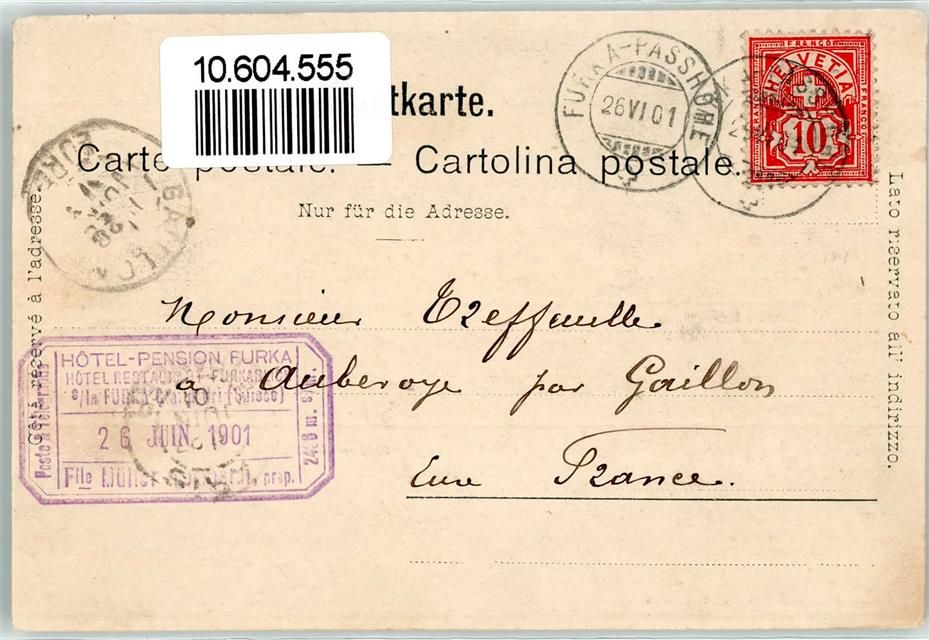 10.604.555
tkarte.
Carte postale. — Cartolina postale.
Nur für die Adresse.
FURKA-PASSHÖHE
26 VI 01
FRANCO
HELVETIA
10
GAILLON
EURE
Côté réservé à l'adresse.
Lato riservato all'indirizzo.
Monsieur Treffeuille
à Aubevoye par Gaillon
Eure France.
HÔTEL-PENSION FURKA
HÔTEL RESTAURANT FURKABLICK
s/la FURKA (Suisse)
26 JUIN 1901
Flle Müller prop.